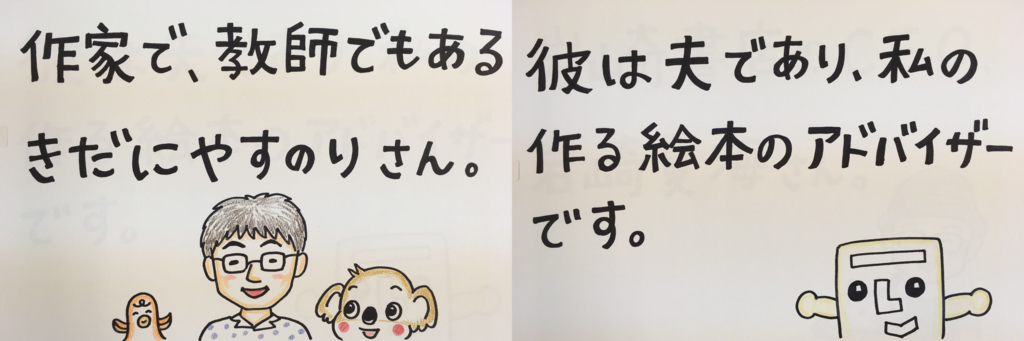 作家で、教師でもある
きだにやすのりさん。
彼は夫であり、私の
作る絵本のアドバイザー
です。